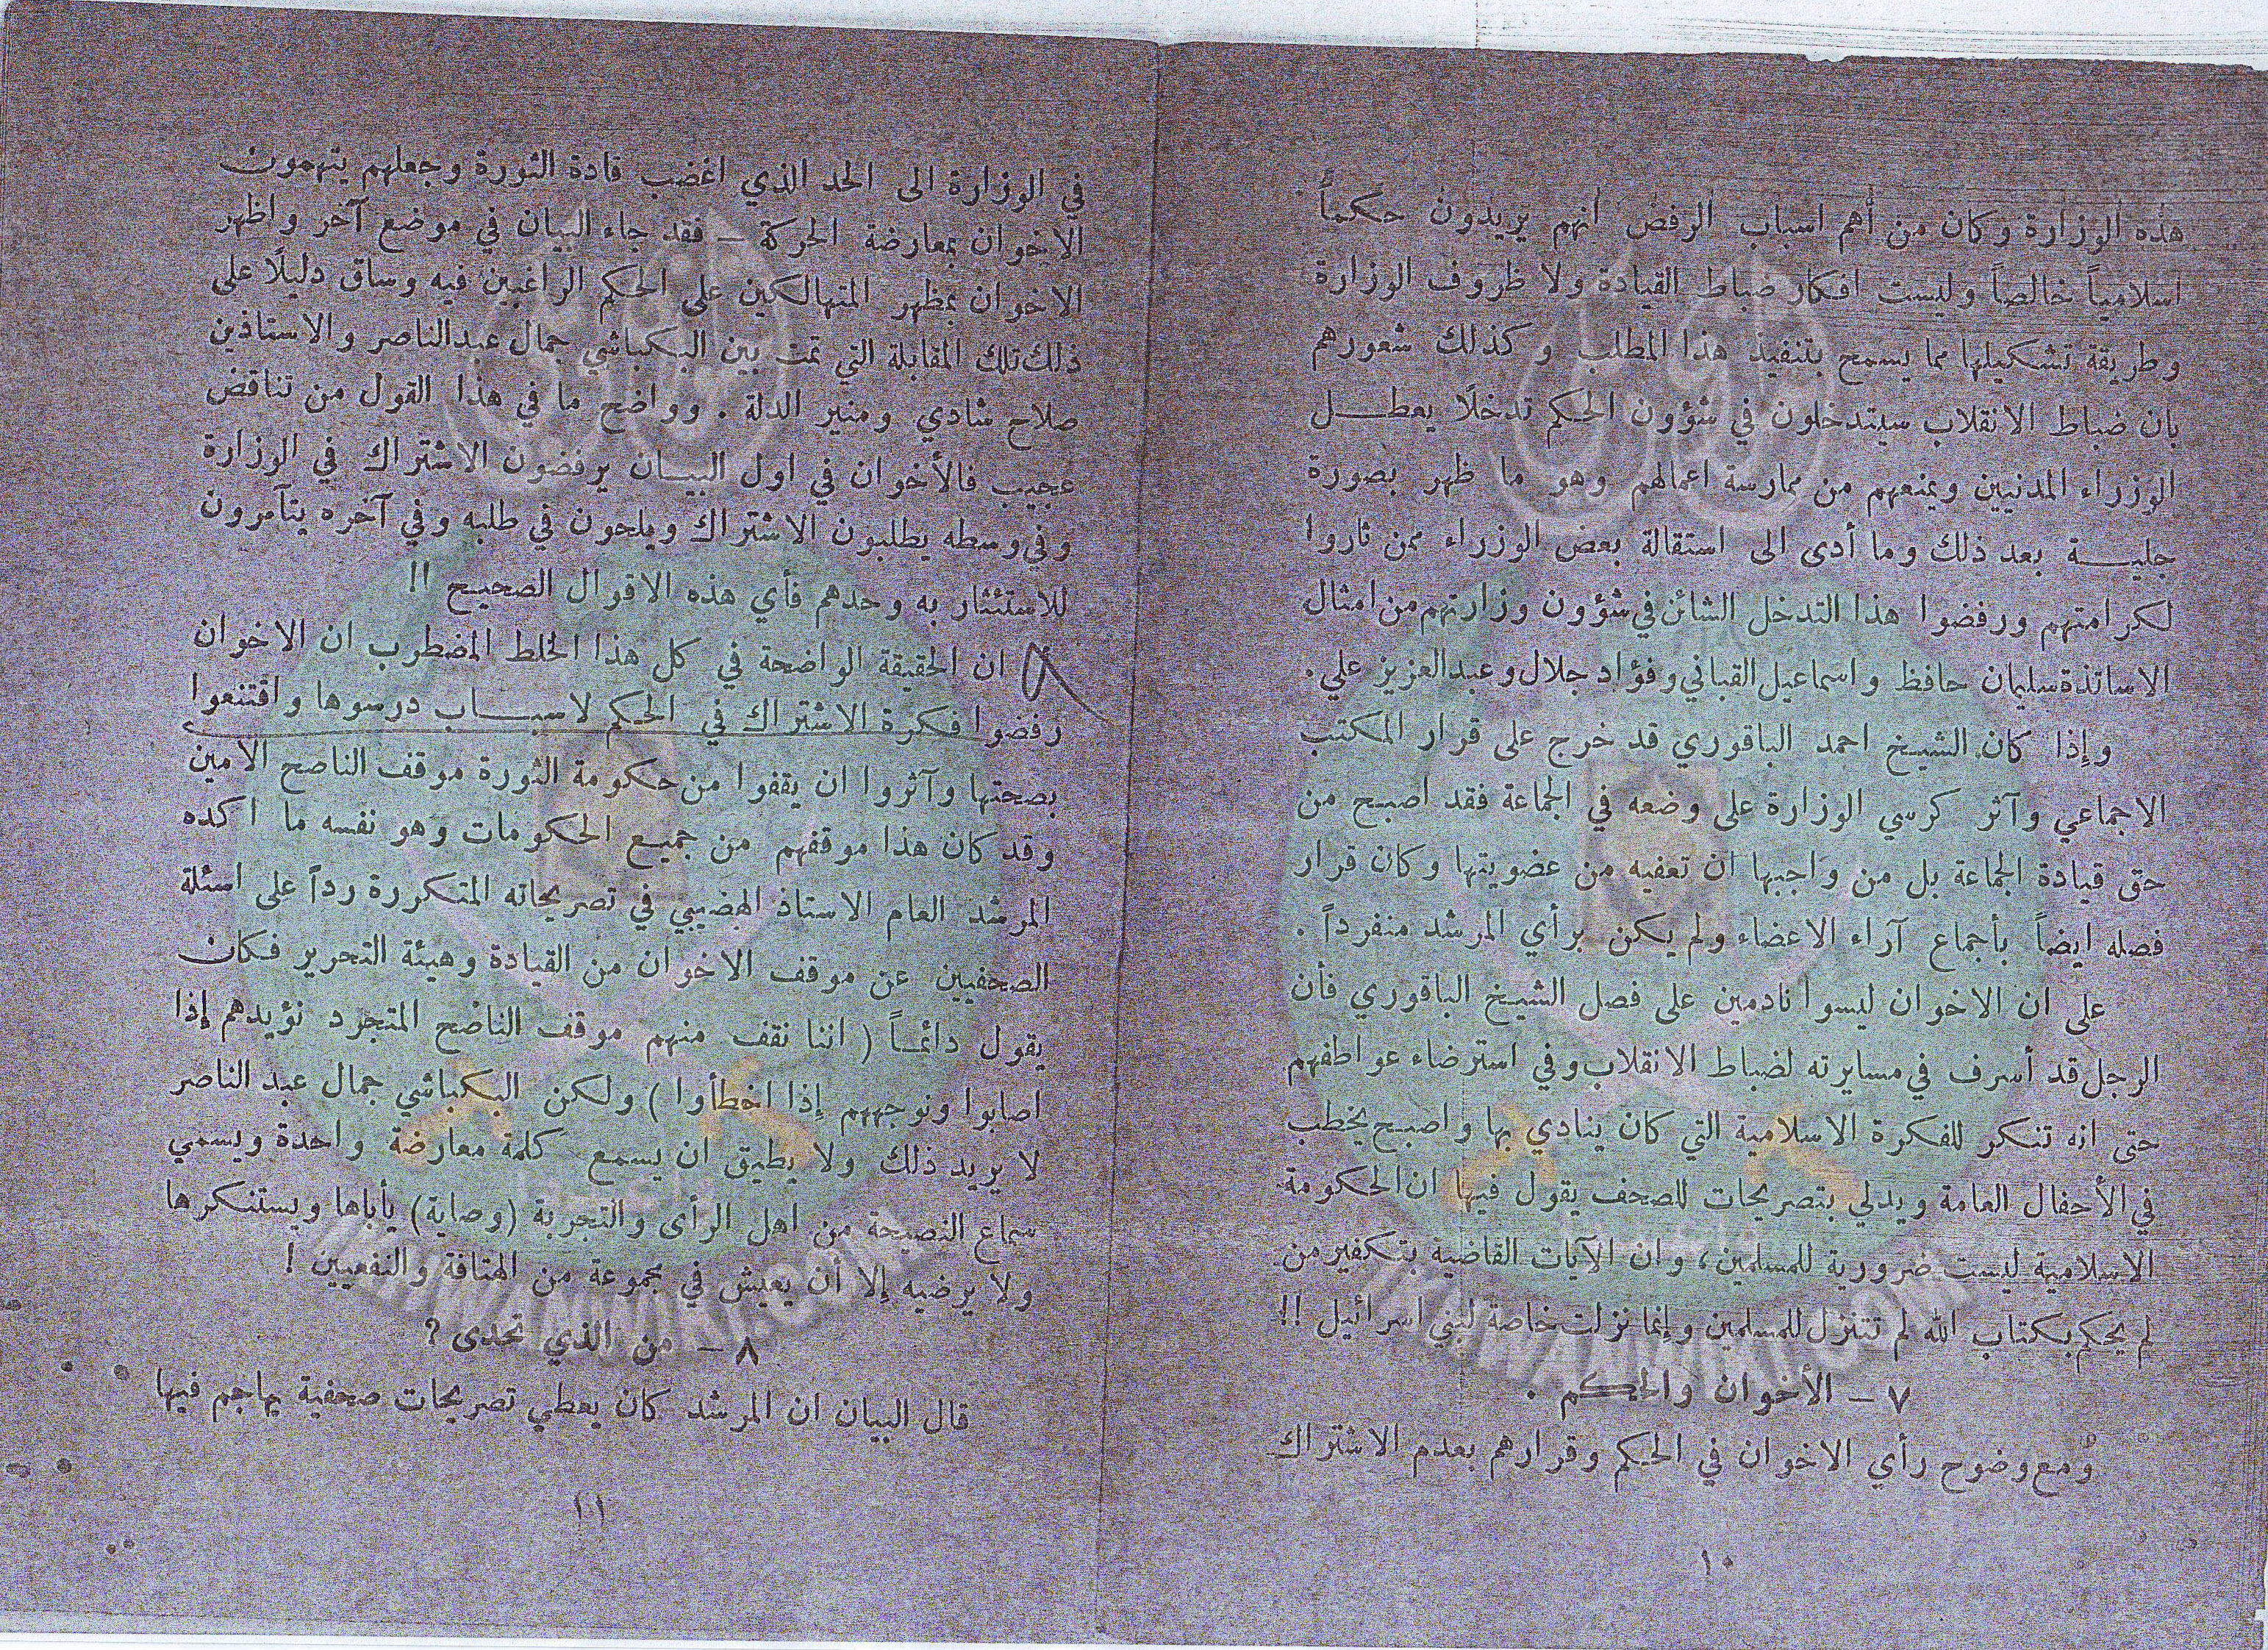 هذه الوزارة وكان من أهم اسباب الرفض انهم يريدون حكماً
اسلامياً خالصاً وليست افكار ضباط القيادة ولا ظروف الوزارة
وطريقة تشكيلها مما يسمح بتنفيذ هذا المطلب وكذلك شعورهم
بان ضباط الانقلاب سيتدخلون في شؤون الحكم تدخلاً يعطـــل
الوزراء المدنيين ويمنعهم من ممارسة اعمالهم وهو ما ظهر بصورة
جليـــة بعد ذلك وما أدى الى استقالة بعض الوزراء ممن ثاروا
لكرامتهم ورفضوا هذا التدخل الشائن في شؤون وزارتهم من امثال
الاساتذة سليمان حافظ واسماعيل القباني وفؤاد جلال وعبد العزيز علي .
وإذا كان الشيخ احمد الباقوري قد خرج على قرار المكتب
الاجماعي وآثر كرسي الوزارة على وضعه في الجماعة فقد اصبح من
حق قيادة الجماعة بل من واجبها ان تعفيه من عضويتها وكان قرار
فصله ايضاً بأجماع آراء الاعضاء ولم يكن برأي المرشد منفرداً .
على ان الاخوان ليسوا نادمين على فصل الشيخ الباقوري فأن
الرجل قد أسرف في مسايرته لضباط الانقلاب وفي استرضاء عواطفهم
حتى انه تنكر للفكرة الاسلامية التي كان ينادي بها واصبح يخطب
في الأحفال العامة ويدلي بتصريحات للصحف يقول فيها ان الحكومة
الاسلامية ليست ضرورية للمسلمين ، وان الآيات القاضية بتكفير من
لم يحكم بكتاب الله لم تتنزل للمسلمين وإنما نزلت خاصة لبني اسرائيل !!
٧ – الأخوان والحكم .
ومع وضوح رأي الاخوان في الحكم وقرارهم بعدم الاشتراك
١٠
في الوزارة الى الحد الذي اغضب قادة الثورة وجعلهم يتهمون
الاخوان بمعارضة الحركة – فقد جاء البيان في موضع آخر واظهر
الاخوان بمظهر المتهالكين على الحكم الراغبين فيه وساق دليلاً على
ذلك تلك المقابلة التي تمت بين البكباشي جمال عبد الناصر والاستاذين
صلاح شادي ومنير الدلة . وواضح ما في هذا القول من تناقض
عجيب فالأخوان في اول البيـــان يرفضون الاشتراك في الوزارة
وفي وسطه يطلبون الاشتراك ويلحون في طلبه وفي آخره يتآمرون
للاستئثار به وحدهم فأي هذه الاقوال الصحيح !!
ان الحقيقة الواضحة في كل هذا الخلط المضطرب ان الاخوان
رفضوا فكرة الاشتراك في الحكم لاسبـــاب درسوها واقتنعوا
بصحتها وآثروا ان يقفوا من حكومة الثورة موقف الناصح الامين
وقد كان هذا موقفهم من جميع الحكومات وهو نفسه ما اكده
المرشد العام الاستاذ الهضيبي في تصريحاته المتكررة رداً على اسئلة
الصحفيين عن موقف الاخوان من القيادة وهيئة التحرير فكان
يقول دائمـاً ( اننا نقف منهم موقف الناصح المتجرد نؤيدهم إذا
اصابوا ونوجههم إذا اخطأوا ) ولكن البكباشي جمال عبد الناصر
لا يريد ذلك ولا يطيق ان يسمع كلمة معارضة واحدة ويسمي
سماع النصيحة من اهل الرأى والتجربة (وصاية) يأباها ويستنكرها
ولا يرضيه إلا أن يعيش في مجموعة من الهتافة والنفعيين !
٨ – من الذي تحدى ؟
قال البيان ان المرشد كان يعطي تصريحات صحفية يهاجم فيها
١١
IKHWANWIKI.COM
IKHWANWIKI.COM